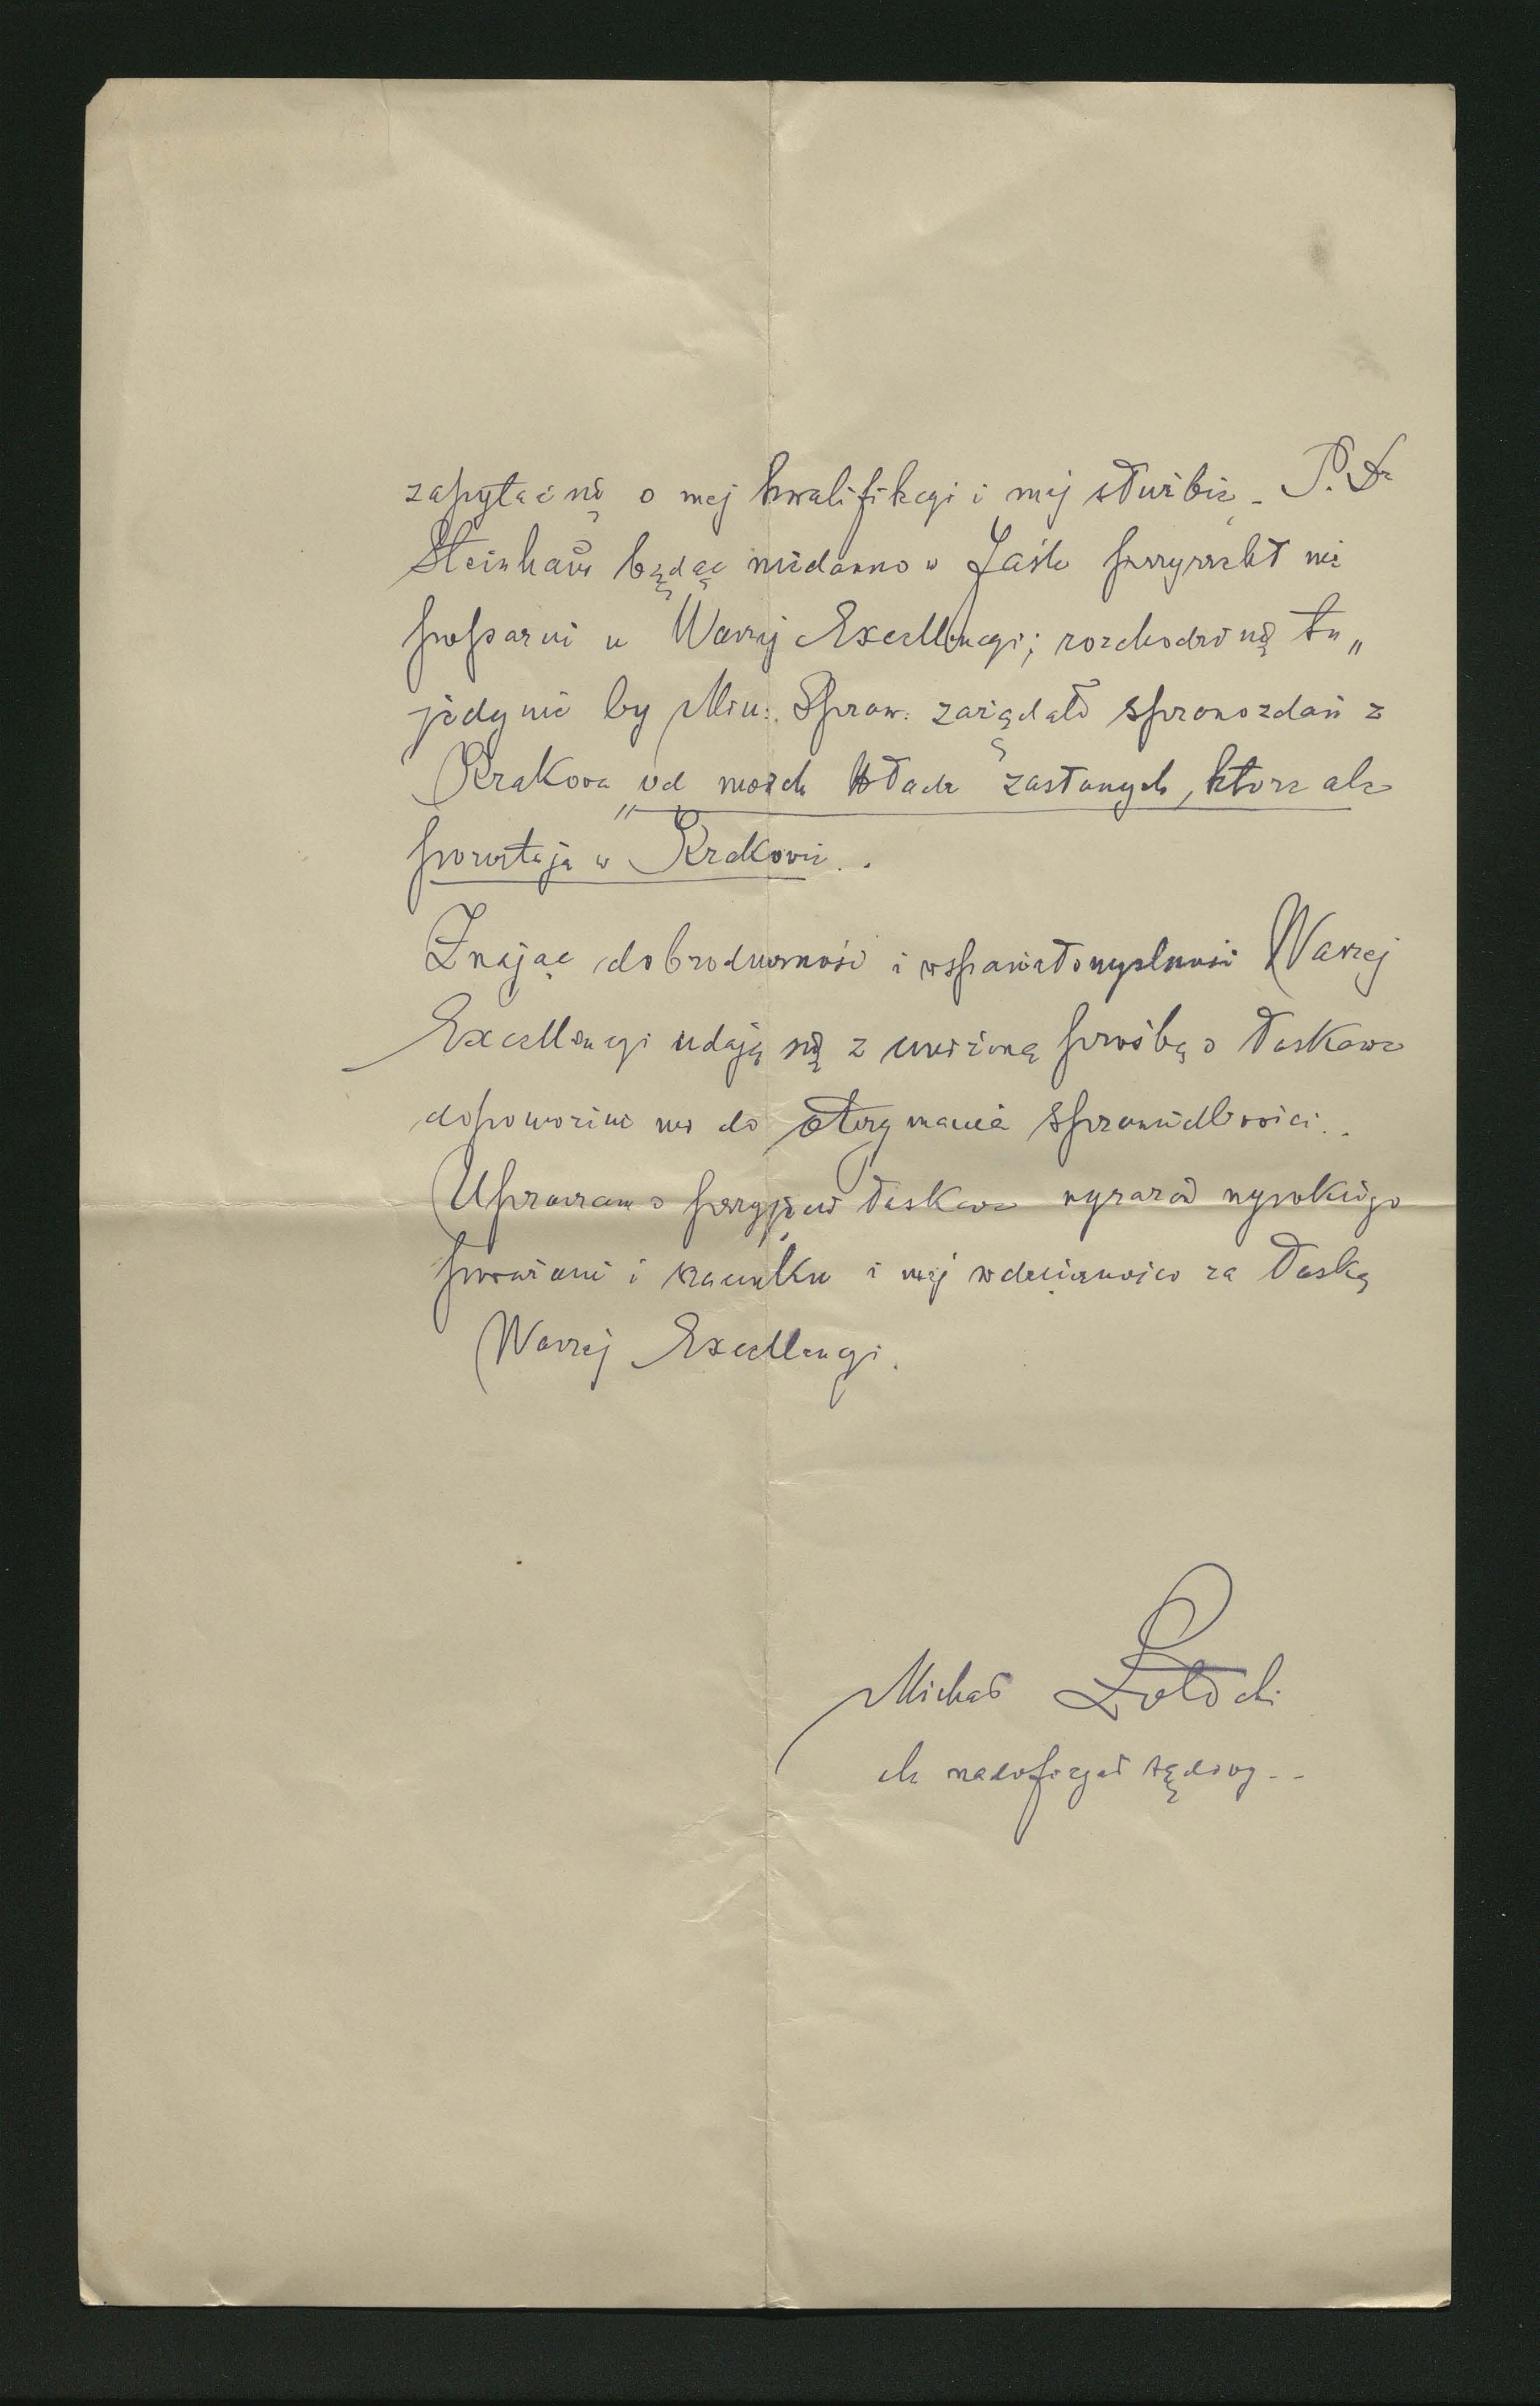 zapytać się o mej kwalifikacyi i mej służbie. P. Dr
Steinhaus będąc niedawno w Jaśle przyrzekł mi
poparcie u Waszej Excellencyi; rozchodzi się tu „
jedynie by Min: Spraw: zażądało sprawozdań z
Krakowa „od moich władz zasłanych, które ale
pozostają w Krakowie..
Znając dobroduszność i wspaniałomyślność Waszej
Excellencyi udaję się z uniżoną prośbą o łaskawe
dopomożenie mi do otrzymania sprawiedliwości..
Upraszam o przyjęcie łaskawe wyrazów wysokiego
poważania i szacunku i mej wdzięczności za łaskę
Waszej Excellencyi.
Michał
ck nadoficyał sądowy --